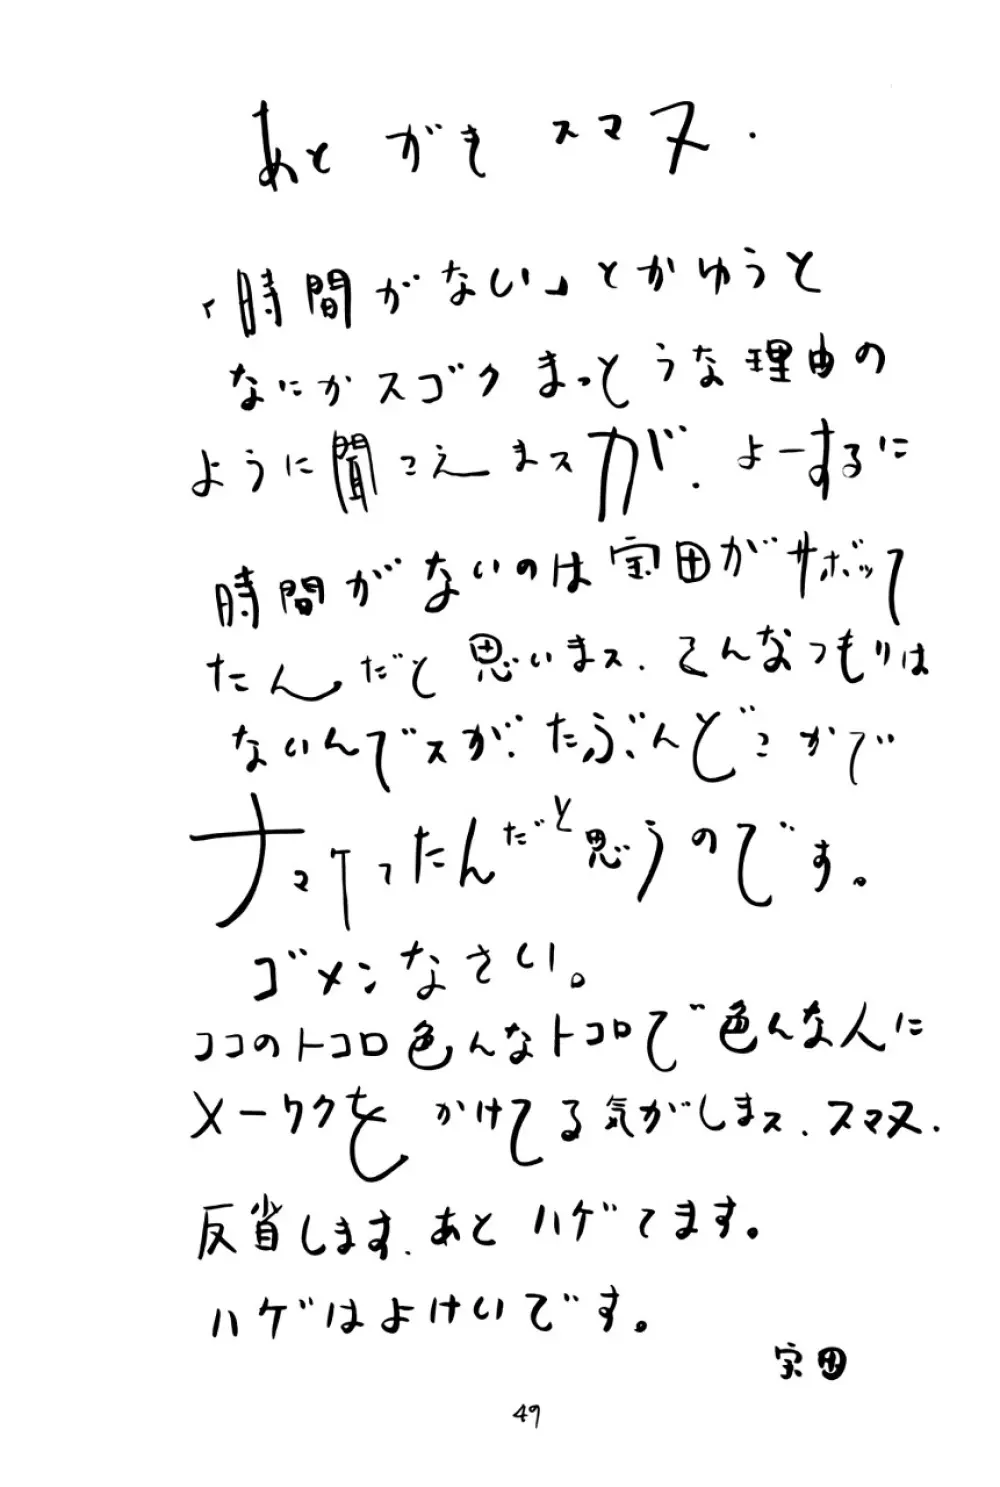 あとがきスマヌ.
「時間がない」とかゆうと
なにかスゴクまっとうな理由の
ように聞こえまスが.よーするに
時間がないのは宝田がサボって
たんだと思いまス.そんなつもりは
ないんでスが.たぶんどこかで
ナマケったんだと思うのです。
ゴメンなさい。
ココのトコロ色んなトコロで色んな人に
メーワクをかけてる気がしまス.スマヌ.
反省します.あとハゲてます。
ハゲはよけいです。
宝田
49